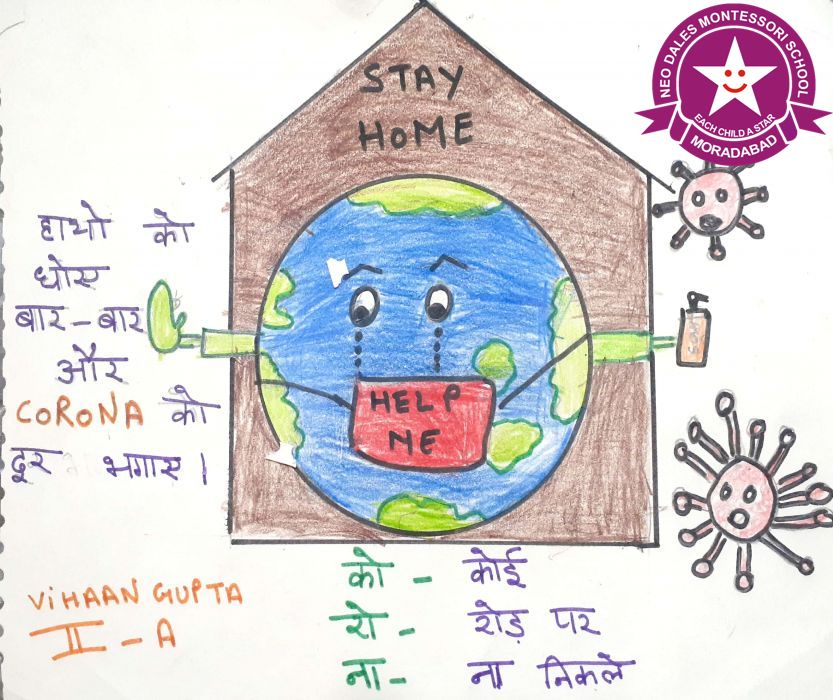 NEO DALES MONTESSORI SCHOOL
EACH CHILD A STAR
MORADABAD
STAY
HOME
हाथो को
धोए
बार-बार
और
CORONA को
दूर भगाए।
HELP
ME
को - कोई
रो - रोड़ पर
ना - ना निकले
VIHAAN GUPTA
II - A